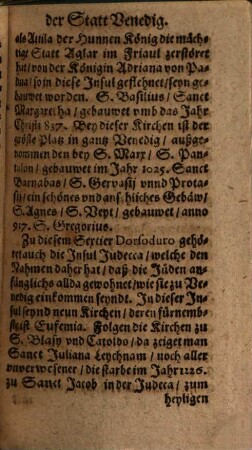 der Statt Venedig.
als Attila der Hunnen König die mäch-
tige Statt Aglar im Friaul zerstöret
hat / von der Königin Adriana von Pa-
dua / so in diese Insul geflehnet / seyn ge-
bauwet worden. S. Basilius / Sanct
Margaretha / gebauwet vmb das Jahr
Christi 837. Bey dieser Kirchen ist der
gröste Platz in gantz Venedig / außge-
nommen den bey S. Marx / S. Pan-
talon / gebauwet im Jahr 1025. Sanct
Barnabas / S. Gervasij vnnd Prota-
sij / ein schönes vnd ansehliches Gebäw /
S. Agnes / S. Veyt / gebauwet / anno
917. S. Gregorius.
Zu diesem Sextier Dorsoduro gehö-
ret auch die Insul Judecca / welche den
Nahmen daher hat / daß die Jüden an-
fänglichs allda gewohnet / wie sie zu Ve-
nedig einkommen seyndt. In dieser In-
sul seynd neun Kirchen / deren fürnemb-
ste ist Eufemia. Folgen die Kirchen zu
S. Blasy vnd Catoldo / da zeiget man
Sanct Juliana Leychnam / noch aller
vnverwesener / die starbe im Jahr 1226.
zu Sanct Jacob in der Judeca / zum
heyligen